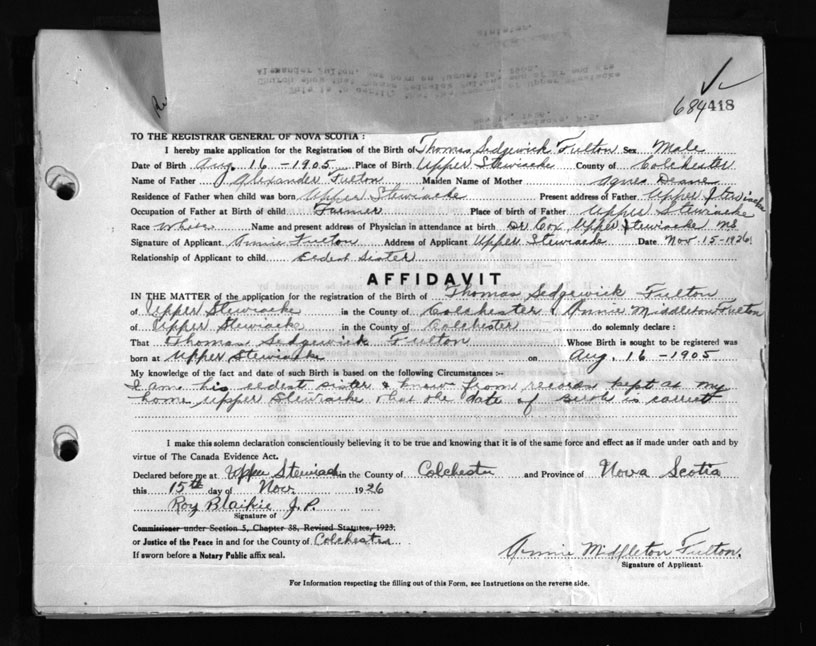 684418
TO THE REGISTRAR GENERAL OF NOVA SCOTIA :
I hereby make application for the Registration of the Birth of Thomas Sedgewick Fulton Sex Male
Date of Birth Aug. 16 - 1905 Place of Birth Upper Stewiacke County of Colchester
Name of Father Alexander Fulton Maiden Name of Mother Agnes
Residence of Father when child was born Upper Stewiacke Present address of Father Upper Stewiacke
Occupation of Father at Birth of child Farmer Place of birth of Father Upper Stewiacke
Race White Name and present address of Physician in attendance at birth Dr Cox, Upper Stewiacke N.S.
Signature of Applicant Annie Fulton Address of Applicant Upper Stewiacke Date Nov 15 - 1926
Relationship of Applicant to child Eldest Sister
AFFIDAVIT
IN THE MATTER of the application for the registration of the Birth of Thomas Sedgewick Fulton
of Upper Stewiacke in the County of Colchester & Annie Middleton Fulton
of Upper Stewiacke in the County of Colchester do solemnly declare :
That Thomas Sedgewick Fulton Whose Birth is sought to be registered was
born at Upper Stewiacke on Aug. 16 - 1905
My knowledge of the fact and date of such Birth is based on the following Circumstances :-
I am his eldest sister & know from records kept at my
home Upper Stewiacke that the date of birth is correct
I make this solemn declaration conscientiously believing it to be true and knowing that it is of the same force and effect as if made under oath and by
virtue of The Canada Evidence Act.
Declared before me at Upper Stewiacke in the County of Colchester and Province of Nova Scotia
this 15th day of Nov. 1926
Roy Blaikie J.P.
Signature of
Commissioner under Section 5, Chapter 38, Revised Statutes, 1923,
or Justice of the Peace in and for the County of Colchester
If sworn before a Notary Public affix seal.
Annie Middleton Fulton.
Signature of Applicant.
For Information respecting the filling out of this Form, see Instructions on the reverse side.